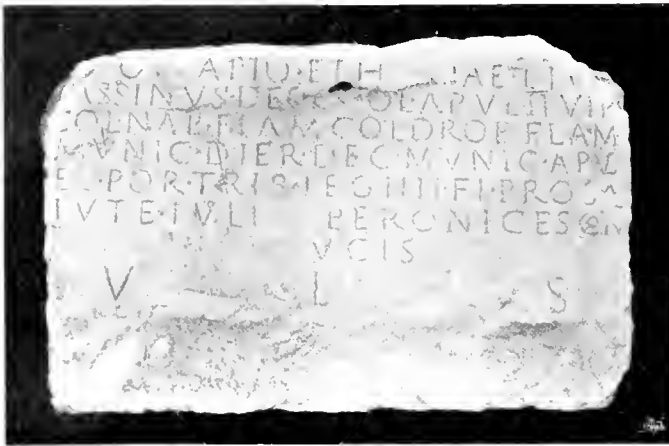 APIO·ET H IAE·LI
ASSINVS·DEC·COL·APVL·II VIR
COL NAP·FLAM·COLDROB FLAM
MVNIC·DIER·DEC MVNIC·APVL
LEG IIII·F·F·PRO SA
LVTE·IVLI VERONICES
VGIS
V L S